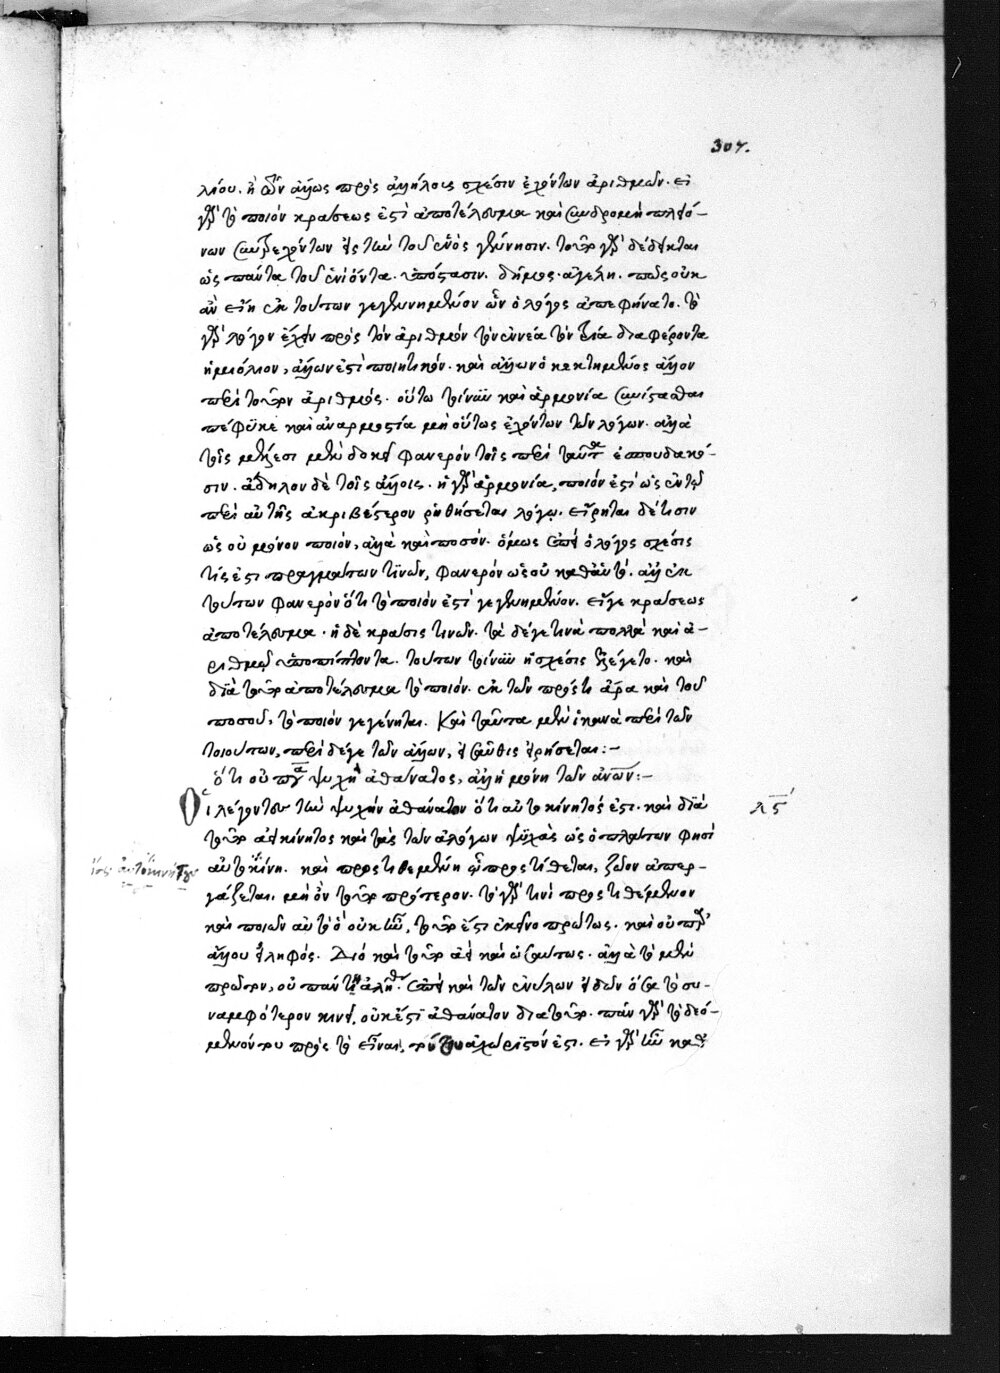 307.
λίου. ἢ ὧν ἄλλως πρὸς ἀλλήλους σχέσιν ἐχόντων ἀριθμῶν. εἰ
γὰρ τὸ ποιὸν κράσεώς ἐστι ἀποτέλεσμα καὶ συνδρομὴ πλειό-
νων συντρεχόντων εἰς τὴν τοῦ ἑνὸς γέννησιν. τοῦτο γὰρ δέδεικται
ὡς πάντα τοῦ ἑνὶ ὄντα. ὑπόστασιν. δῆμος. ἀγέλη. πῶς οὐκ
ἂν εἴη ἐκ τούτων γεγεννημένον ὧν ὁ λόγος ἀπεφήνατο. τὸ
γὰρ λόγον ἔχειν πρὸς τὸν ἀριθμὸν τὸν ἐννέα τὸν διαφέροντα
ἡμιόλιον, ἄλλων ἐστὶ ποιητικόν. καὶ ἄλλων ὁ κεκτημένος ἄλλον
περὶ τοῦτον ἀριθμός. οὕτω τοίνυν καὶ ἁρμονία συνίστασθαι
πέφυκε καὶ ἀναρμοστία μὴ οὕτως ἐχόντων τῶν λόγων. ἀλλὰ
τοῖς μέλεσι μὲν δοκεῖ φανερὸν τοῖς περὶ ταῦτα ἐσπουδακό-
σιν. ἄδηλον δὲ τοῖς ἄλλοις. ἡ γὰρ ἁρμονία, ποιόν ἐστι ὡς ἐν τῷ
περὶ αὐτῆς ἀκριβέστερον ῥηθήσεται λόγῳ. εἴρηται δέ τισιν
ὡς οὐ μόνον ποιὸν, ἀλλὰ καὶ ποσόν. ὅμως ἐπεὶ ὁ λόγος σχέσις
τίς ἐστι πραγμάτων τινῶν, φανερὸν ὡς οὐ καθ' αὑτό. ἀλλ' ἐκ
τούτων φανερὸν ὅτι τὸ ποιόν ἐστι γεγεννημένον. εἴγε κράσεως
ἀποτέλεσμα. ἡ δὲ κρᾶσις τινῶν. τὰ δέ γε τινὰ πολλὰ καὶ ἀ-
ριθμῷ ὑποπίπτοντα. τούτων τοίνυν ἡ σχέσις ἐλέγετο. καὶ
διὰ τοῦτο ἀποτέλεσμα τὸ ποιόν. ἐκ τῶν πρός τι ἄρα καὶ τοῦ
ποσοῦ, τὸ ποιὸν γεγένηται. Καὶ ταῦτα μὲν ἱκανὰ περὶ τῶν
τοιούτων, περὶ δέ γε τῶν ἄλλων, εἰσαῦθις εἰρήσεται:-
ὅτι οὐ πᾶσα ψυχὴ ἀθάνατος, ἀλλ' ἡ μόνη τῶν ἀνων:-
Οἱ λέγοντες τὴν ψυχὴν ἀθάνατον ὅτι αὐτοκίνητός ἐστι. καὶ διὰ
λς
τοῦτο ἀεικίνητος καὶ τὰς τῶν ἀλόγων ψυχὰς ὡς ὁ πλάτων φησὶ
αὐτοκίνη. καὶ προστιθεμένη ᾧ προστίθεται, ζῶον ἀπερ-
γάζεται, μὴ ὂν τοῦτο πρότερον. τὸ γάρ τινι προστιθέμενον
καὶ ποιῶν αὐτὸ ὃ οὐκ ἦν, τοῦτό ἐστι ἐκεῖνο πρώτως. καὶ οὐ παρ'
ἄλλου εἰληφός. Διὸ καὶ τοῦτο ἀεὶ καὶ ὡσαύτως. ἀλλὰ τὸ μὲν
πρῶτον, οὐ πάντη ἀληθ. ἐπεὶ καὶ τῶν ἐνύλων εἰδῶν ὅσα τὸ συ-
ναμφότερον κινεῖ, οὐκ ἔστι ἀθάνατον διὰ τοῦτο. πᾶν γὰρ τὸ δεό-
μενόν του πρὸς τὸ εἶναι, τούτου ἀχώριστόν ἐστι. εἰ γὰρ ἦν καθ'